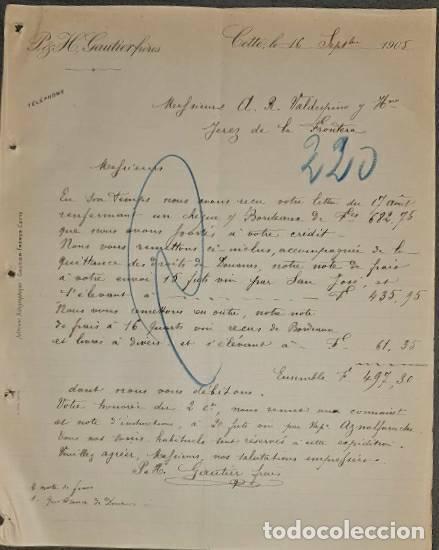 P. & H. Gautier frères
Cette, le 16 Septbre 1905
TÉLÉPHONE
Messieurs A. R. Valdespino y Hno
Jerez de la Frontera
220
Messieurs
En son temps nous avons reçu votre lettre du 17 août
renfermant un chèque s/ Bordeaux de Frs 682,75
que nous avons portés à votre crédit.
Nous vous remettons ci inclus, accompagnée de la
quittance des droits de Douane, notre note de frais
à votre envoi 15 futs vin par San José, et
s'élevant à F 435,95
Nous vous remettons en outre, notre note
de frais à 16 quarts vin reçus de Bordeaux
et livrés à divers et s'élevant à F 61,35
Ensemble F 497,30
dont nous vous débitons.
Votre honorée du 2 ct, nous remet au connaist
et note d'instruction, à 20 futs vin par Vap. Aznalfarache
Tous nos soins habituels sont réservés à cette expédition.
Veuillez agréer, Messieurs, nos salutations empressées.
P & H. Gautier frères
2 note de frais
1. quittance de Douane
Adresse Télégraphique: GAUTIER FRÈRES CETTE
todocoleccion.net